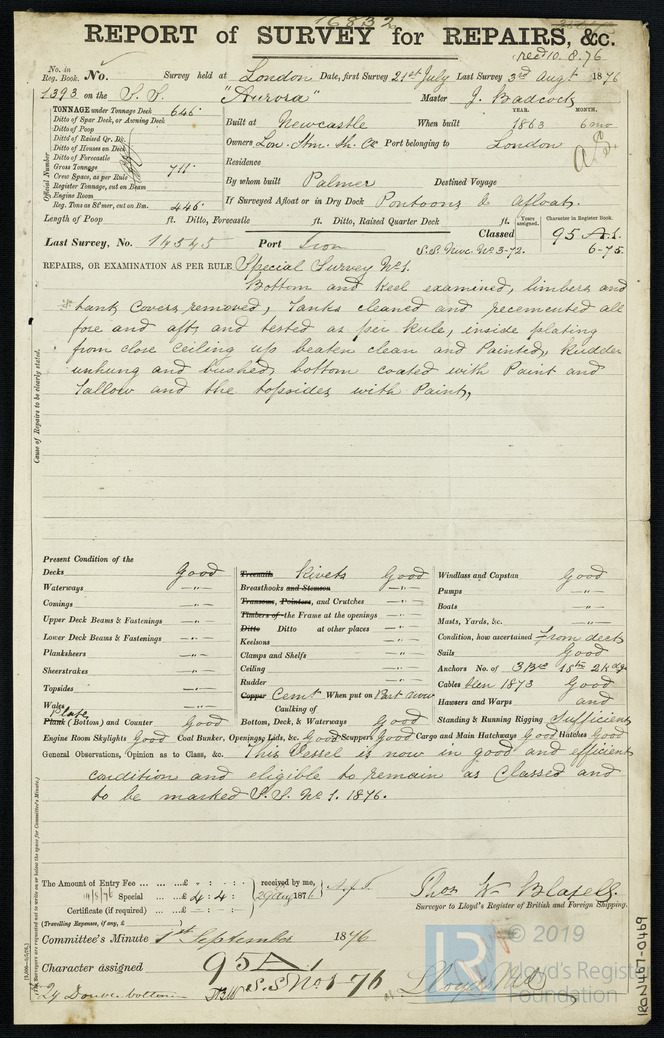 16832
REPORT of SURVEY for REPAIRS, &c.
rec'd 10.8.76
No. in Reg. Book. No. Survey held at London Date, first Survey 21st July Last Survey 3rd Augt 1876
1393 on the S.S. "Aurora" Master J. Badcock
TONNAGE under Tonnage Deck 646
Ditto of Spar Deck, or Awning Deck
Ditto of Poop
Ditto of Raised Qr. Dk.
Ditto of Houses on Deck
Ditto of Forecastle
Gross Tonnage 711
Crew Space, as per Rule
Register Tonnage, cut on Beam
Engine Room
Reg. Tons as St'mer, cut on Bm. 446
Official Number
YEAR. MONTH.
Built at Newcastle When built 1863 6 mo
Owners Lon. Stm. Sh. Co Port belonging to London
Residence
By whom built Palmer Destined Voyage
If Surveyed Afloat or in Dry Dock Pontoons & afloat.
Length of Poop ft. Ditto, Forecastle ft. Ditto, Raised Quarter Deck ft.
Years assigned. Character in Register Book.
Last Survey, No. 14545 Port Iron Classed 95 A.1.
S.S. Nwc. No 3-72. 6-75.
REPAIRS, OR EXAMINATION AS PER RULE Special Survey No 1.
Bottom and Keel examined, limbers and
tank covers removed, Tanks cleaned and recemented all
fore and aft, and tested as per Rule, inside plating
from close ceiling up beaten clean and Painted, Rudder
unhung and bushed, bottom coated with Paint and
Tallow and the topsides with Paint,
Cause of Repairs to be clearly stated.
Present Condition of the
Decks Good
Waterways —"—
Comings —"—
Upper Deck Beams & Fastenings —"—
Lower Deck Beams & Fastenings —"—
Planksheers —"—
Sheerstrakes —"—
Topsides —"—
Wales —"—
Plate
Plank (Bottom) and Counter Good
Treenails Rivets Good
Breasthooks and Stemson —"—
Transoms, Pointers, and Crutches —"—
Timbers of the Frame at the openings —"—
Ditto Ditto at other places —"—
Keelsons —"—
Clamps and Shelfs —"—
Ceiling —"—
Rudder —"—
Copper Cemt When put on Part now
Caulking of
Bottom, Deck, & Waterways Good
Windlass and Capstan Good
Pumps —"—
Boats —"—
Masts, Yards, &c. —"—
Condition, how ascertained From deck
Sails Good
Anchors No. of 3 Brs 1 St. 2 Kedgs
Cables when 1873 Good
Hawsers and Warps and
Standing & Running Rigging Sufficient
Engine Room Skylights Good Coal Bunker, Openings, Lids, &c. Good Scuppers Good Cargo and Main Hatchways Good Hatches Good
General Observations, Opinion as to Class, &c. This Vessel is now in good and efficient
condition and eligible to remain as Classed and
to be marked S.S. No 1. 1876.
The Amount of Entry Fee ... ... £ : :
Special ... £ 4 : 4 :
Certificate (if required) ... £ — : :
(Travelling Expenses, if any, £
received by me,
29 Aug 1876
Thos W. Blaxell.
Surveyor to Lloyd's Register of British and Foreign Shipping.
Committee's Minute 1st September 1876
Character assigned 95 A.1
S.S No 1-76
Lloyds
LR
© 2019
Lloyd's Register
Foundation
IRON467-0469